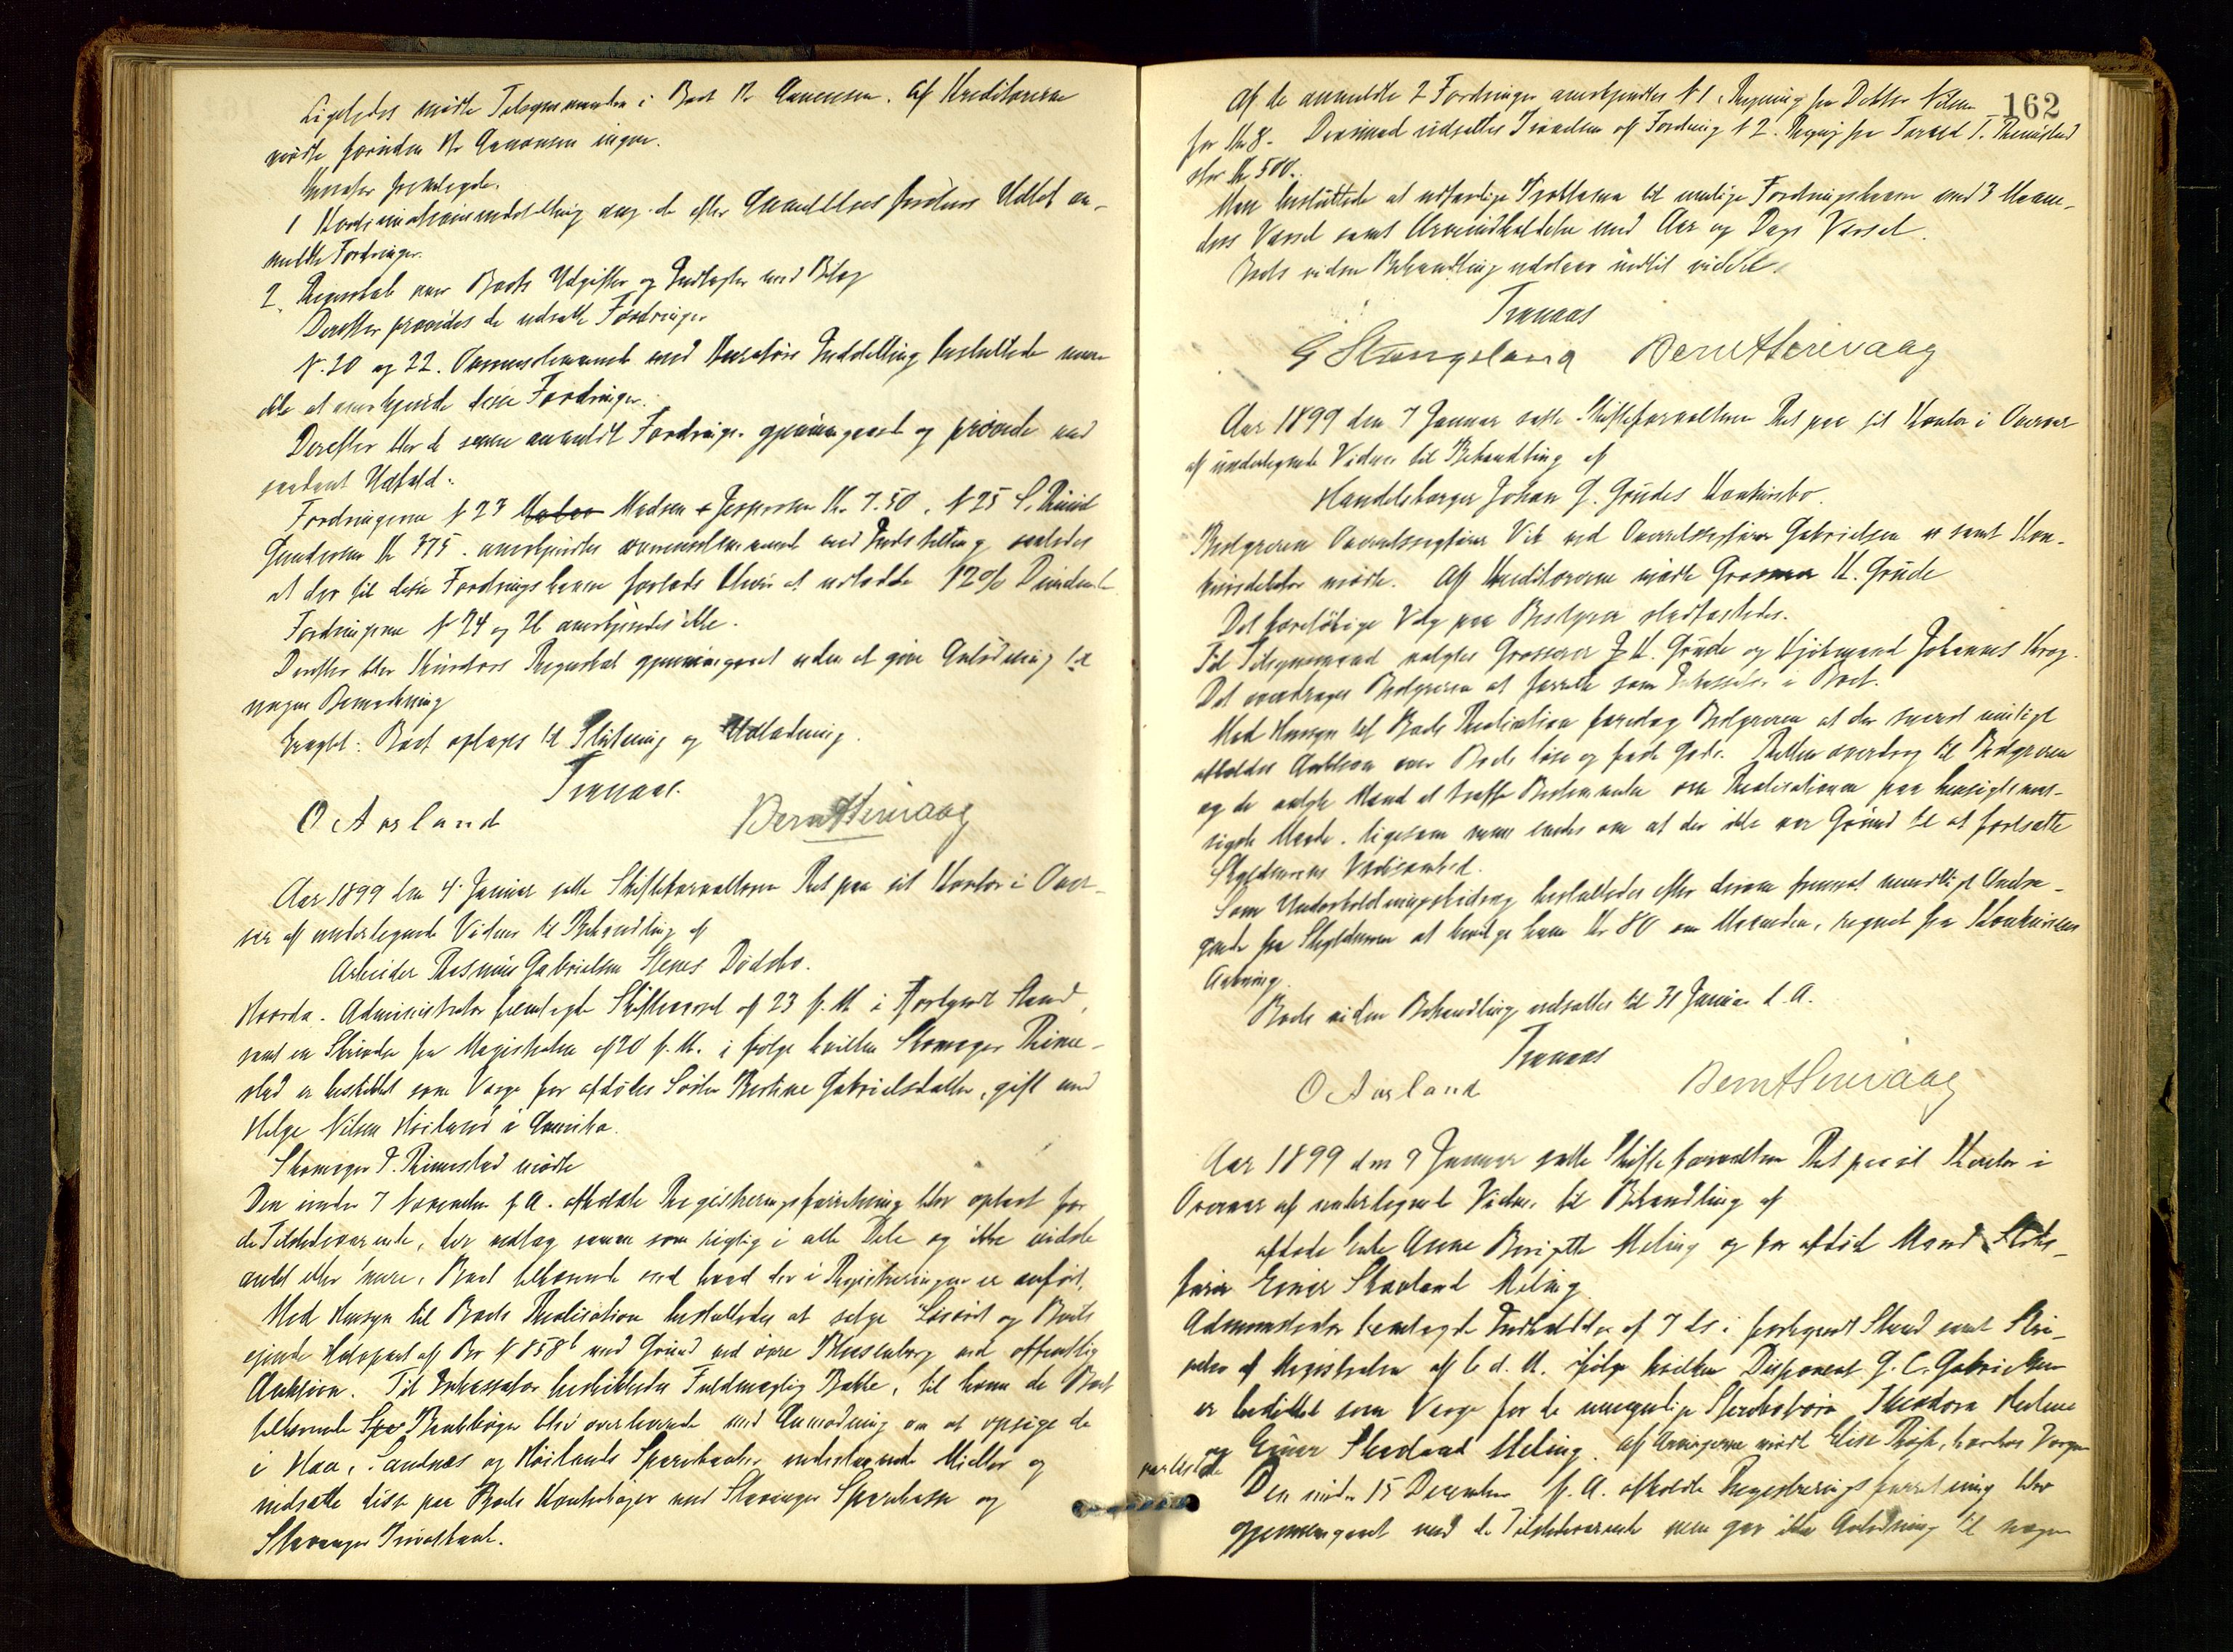 Ligeledes mødte Tilsynsmanden i Boet Kr Aanensen. Af Kreditorerne
mødte foruden Kr Aanensen ingen.
Kurator fremlagde:
1 Kurators indstilling ang. de efter Anmeldelses fristens Udløb an-
meldte Fordringer.
2. Regnskab over Boets Udgifter og Indtægter med Bilag
Derefter prøvedes de udsatte Fordringer
N. 20 og 22. Overensstemmende med Kurators Indstilling besluttede man
ikke at anerkjende disse Fordringer.
Derefter blev de senere anmeldte Fordringer gjennemgaaet og prøvede med
saadant Udfald:
Fordringerne N 23 Madsen & Jespersen Kr. 7.50, N 25
Gundersen Kr 375. anerkjendtes overensstemmende med Indstilling saaledes
at der til disse Fordringshavere udlodde 12% Dividende
Fordringerne N 24 og 26 anerkjendtes ikke.
Derefter blev Kurators Regnskab gjennemgaaet uden at give Anledning til
nogen Bemærkning
Eragtet: Boet optages til Slutning og Udlodning.
Tranaas.
O Aarland Bernt Hervaag
Aar 1899 den 4. Januar satte Skifteforvalteren Ret paa sit Kontor i Over-
vær af undertegnede Vidner til Behandling af
Arbeider Rasmus Gabrielsen Dødsbo.
Hvorda. Administrator fremlagde Skiftevarsel af 23 f. M. i forkyndt Stand,
samt en Skrivelse fra Magistraten af 20 f. M. i følge hvilken Skomager Rime-
stad er beskikket som Værge for afdødes Søster Bertine Gabrielsdatter, gift med
Helge Nilsen Høiland i Amerika.
Skomager T. Rimestad mødte
Den under 7 November f. A. afholdte Registreringsforretning blev oplæst for
de Tilstedeværende, der vedtog samme som rigtig i alle Dele og ikke vidste
andet eller mere, Boet tilhørende end hvad der i Registreringen er anført.
Med Hensyn til Boets Realisation besluttedes at sælge Løsøret og Boets
eiende Halvpart af Br N 858b med Grund ved øvre Blaasenborg ved offentlig
Auktion. Til Inkassator beskikkedes Fuldmægtig Bakke, til hvem de Boet
tilhørende Bankbøger blev overleverede med Anmodning om at opsige de
i Haa, Sandnæs og Høilands Sparebanker indestaaende Midler og
indsætte disse paa Boets Kontrabøger med Stavanger Sparekasse og
Stavanger Privatbank.
162
Af de anmeldte 2 Fordringer anerkjendtes N 1, Regning fra Doktor Nilsen
for Kr 8. Derimod udsattes Prøvelsen af Fordring N 2. Regning fra Tarald T. Rimestad
stor Kr 500.
Man besluttede at udfærdige Proklama til mulige Fordringshavere med 3 Maane-
ders Varsel samt Arveindkaldelse med Aar og Dags Varsel.
Boets videre Behandling udstaar indtil videre.
Tranaas
G Stangeland Bernt Hervaag
Aar 1899 den 7 Januar satte Skifteforvalteren Ret paa sit Kontor i Overvær
af undertegnede Vidner til Behandling af
Handelsborger Johan G. Grudes Konkursbo.
Bestyreren Overretssagfører Vik ved Overretssagfører Gabrielsen samt Kon-
kursdebitor mødte. Af Kreditorerne mødte Grosserer K. Grude
Det foreløbige Valg paa Bestyrer stadfæstedes.
Til Tilsynsmænd valgtes Grosserer K. Grude og Kjøbmand Johannes Krog.
Det overdrages Bestyreren at forrette som Inkassator i Boet.
Med Hensyn til Boets Realisation foreslog Bestyreren at der snarest muligt
afholdes Auktion over Boets løse og faste Gods. Retten overdrog til Bestyreren
og de valgte Mænd at træffe Bestemmelse om Realisationen paa hensigtsmæs-
sigste Maade. ligesom man enedes om at der ikke var Grund til at fortsætte
Skyldnerens Virksomhed.
Som Underholdningsbidrag besluttedes efter derom fremsat mundtligt Andra-
gende fra Skyldneren at bevilge ham Kr 80 om Maaneden, regnet fra Konkursens
Aabning.
Boets videre Behandling udsattes til 31 Januar d. A.
Tranaas
O Aarland Bernt Hervaag
Aar 1899 den 9 Januar satte Skifteforvalteren Ret paa sit Kontor i
Overvær af undertegnede Vidner til Behandling af
afdøde Enke Anne Birgitte Meling og før afdød Mand
Einar Skavland Meling.
Administrator fremlagde Indkaldelse af 7 ds i forkyndt Stand samt Skri-
velse af Magistraten af 6 d. M. ifølge hvilken Disponent G. C. Gabrielsen
er beskikket som Værge for de umyndige Theodora Helene
og Einar Skavland Meling. Af Arvingerne mødte Elise
Den under 15 December f. A. afholdte Registreringsforretning blev
gjennemgaaet med de Tilstedeværende men gav ikke Anledning til nogen